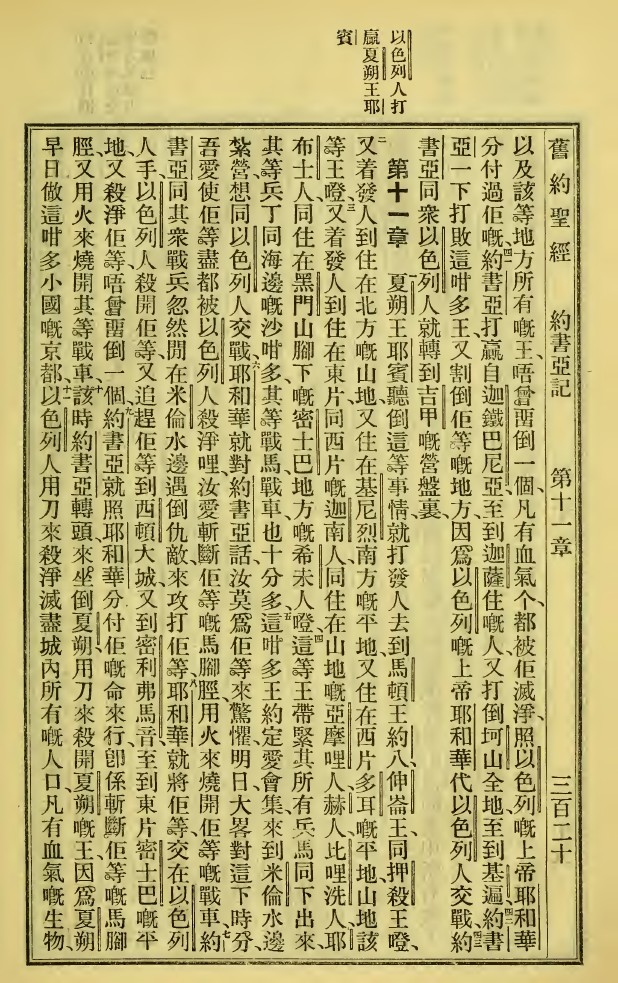 以色列人打
贏夏朔王耶
賓
舊約聖經　約書亞記　第十一章　三百二十
以及該等地方所有嘅王、唔曾畱倒一個、凡有血氣个、都被佢滅淨、照以色列嘅上帝耶和華
分付過佢嘅、四一約書亞打贏自迦鐵巴尼亞、至到迦薩住嘅人、又打倒坷山全地、至到基遍、四二約書
亞一下打敗這咁多王、又割倒佢等嘅地方、因爲以色列嘅上帝耶和華代以色列人交戰、四三約
書亞同衆以色列人、就轉到吉甲嘅營盤裏、
第十一章　一夏朔王耶賓聽倒這等事情、就打發人去到馬頓王約八、伸崙王、同押殺王嗌、
二又着發人到住在北方嘅山地、又住在基尼烈南方嘅平地、又住在西片多耳嘅平地山地該
等王嗌、三又着發人到住在東片同西片嘅迦南人、同住在山地嘅亞摩哩人、赫人、比哩洗人、耶
布士人、同住在黑門山腳下嘅密士巴地方嘅希未人嗌、四這等王帶緊其所有兵馬同下出來、
其等兵丁同海邊嘅沙咁多、其等戰馬戰車也十分多、五這咁多王約定愛會集、來到米倫水邊
紮營、想同以色列人交戰、六耶和華就對約書亞話、汝莫爲佢等來驚懼、明日大畧對這下時分、
吾愛使佢等盡都被以色列人殺淨哩、汝愛斬斷佢等嘅馬腳脛、用火來燒開佢等嘅戰車、七約
書亞同其衆戰兵、忽然間在米倫水邊遇倒仇敵、來攻打佢等、八耶和華就將佢等交在以色列
人手、以色列人殺開佢等、又追趕佢等到西頓大城、又到密利弗馬音、至到東片密士巴嘅平
地、又殺淨佢等、唔曾畱倒一個、九約書亞就照耶和華分付佢嘅命來行、卽係斬斷佢等嘅馬腳
脛、又用火來燒開其等戰車、十該時約書亞轉頭來、坐倒夏朔、用刀來殺開夏朔嘅王、因爲夏朔
早日做這咁多小國嘅京都、十一以色列人用刀來殺淨滅盡城內所有嘅人口、凡有血氣嘅生物、